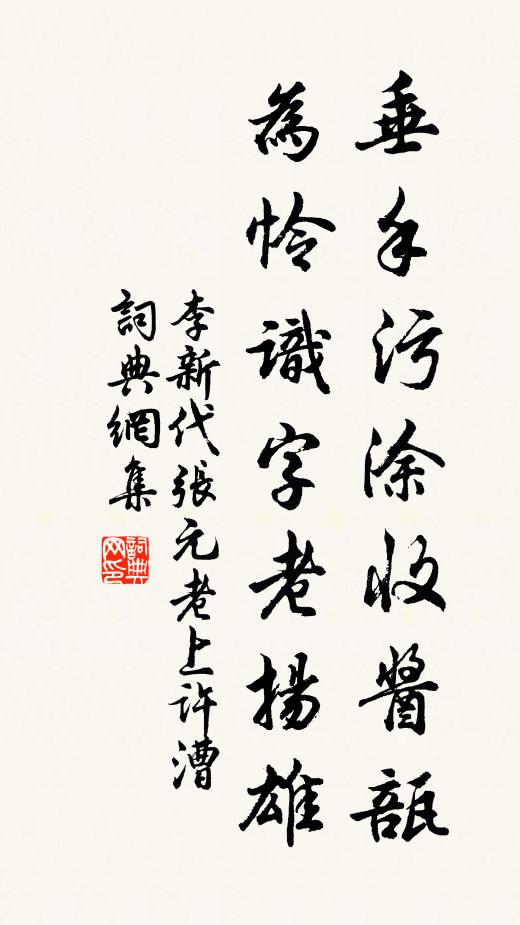 垂手污涂收醬瓿
為怜識字老揚雄
李新代張元老上許漕
詞典網集
詞典
网印